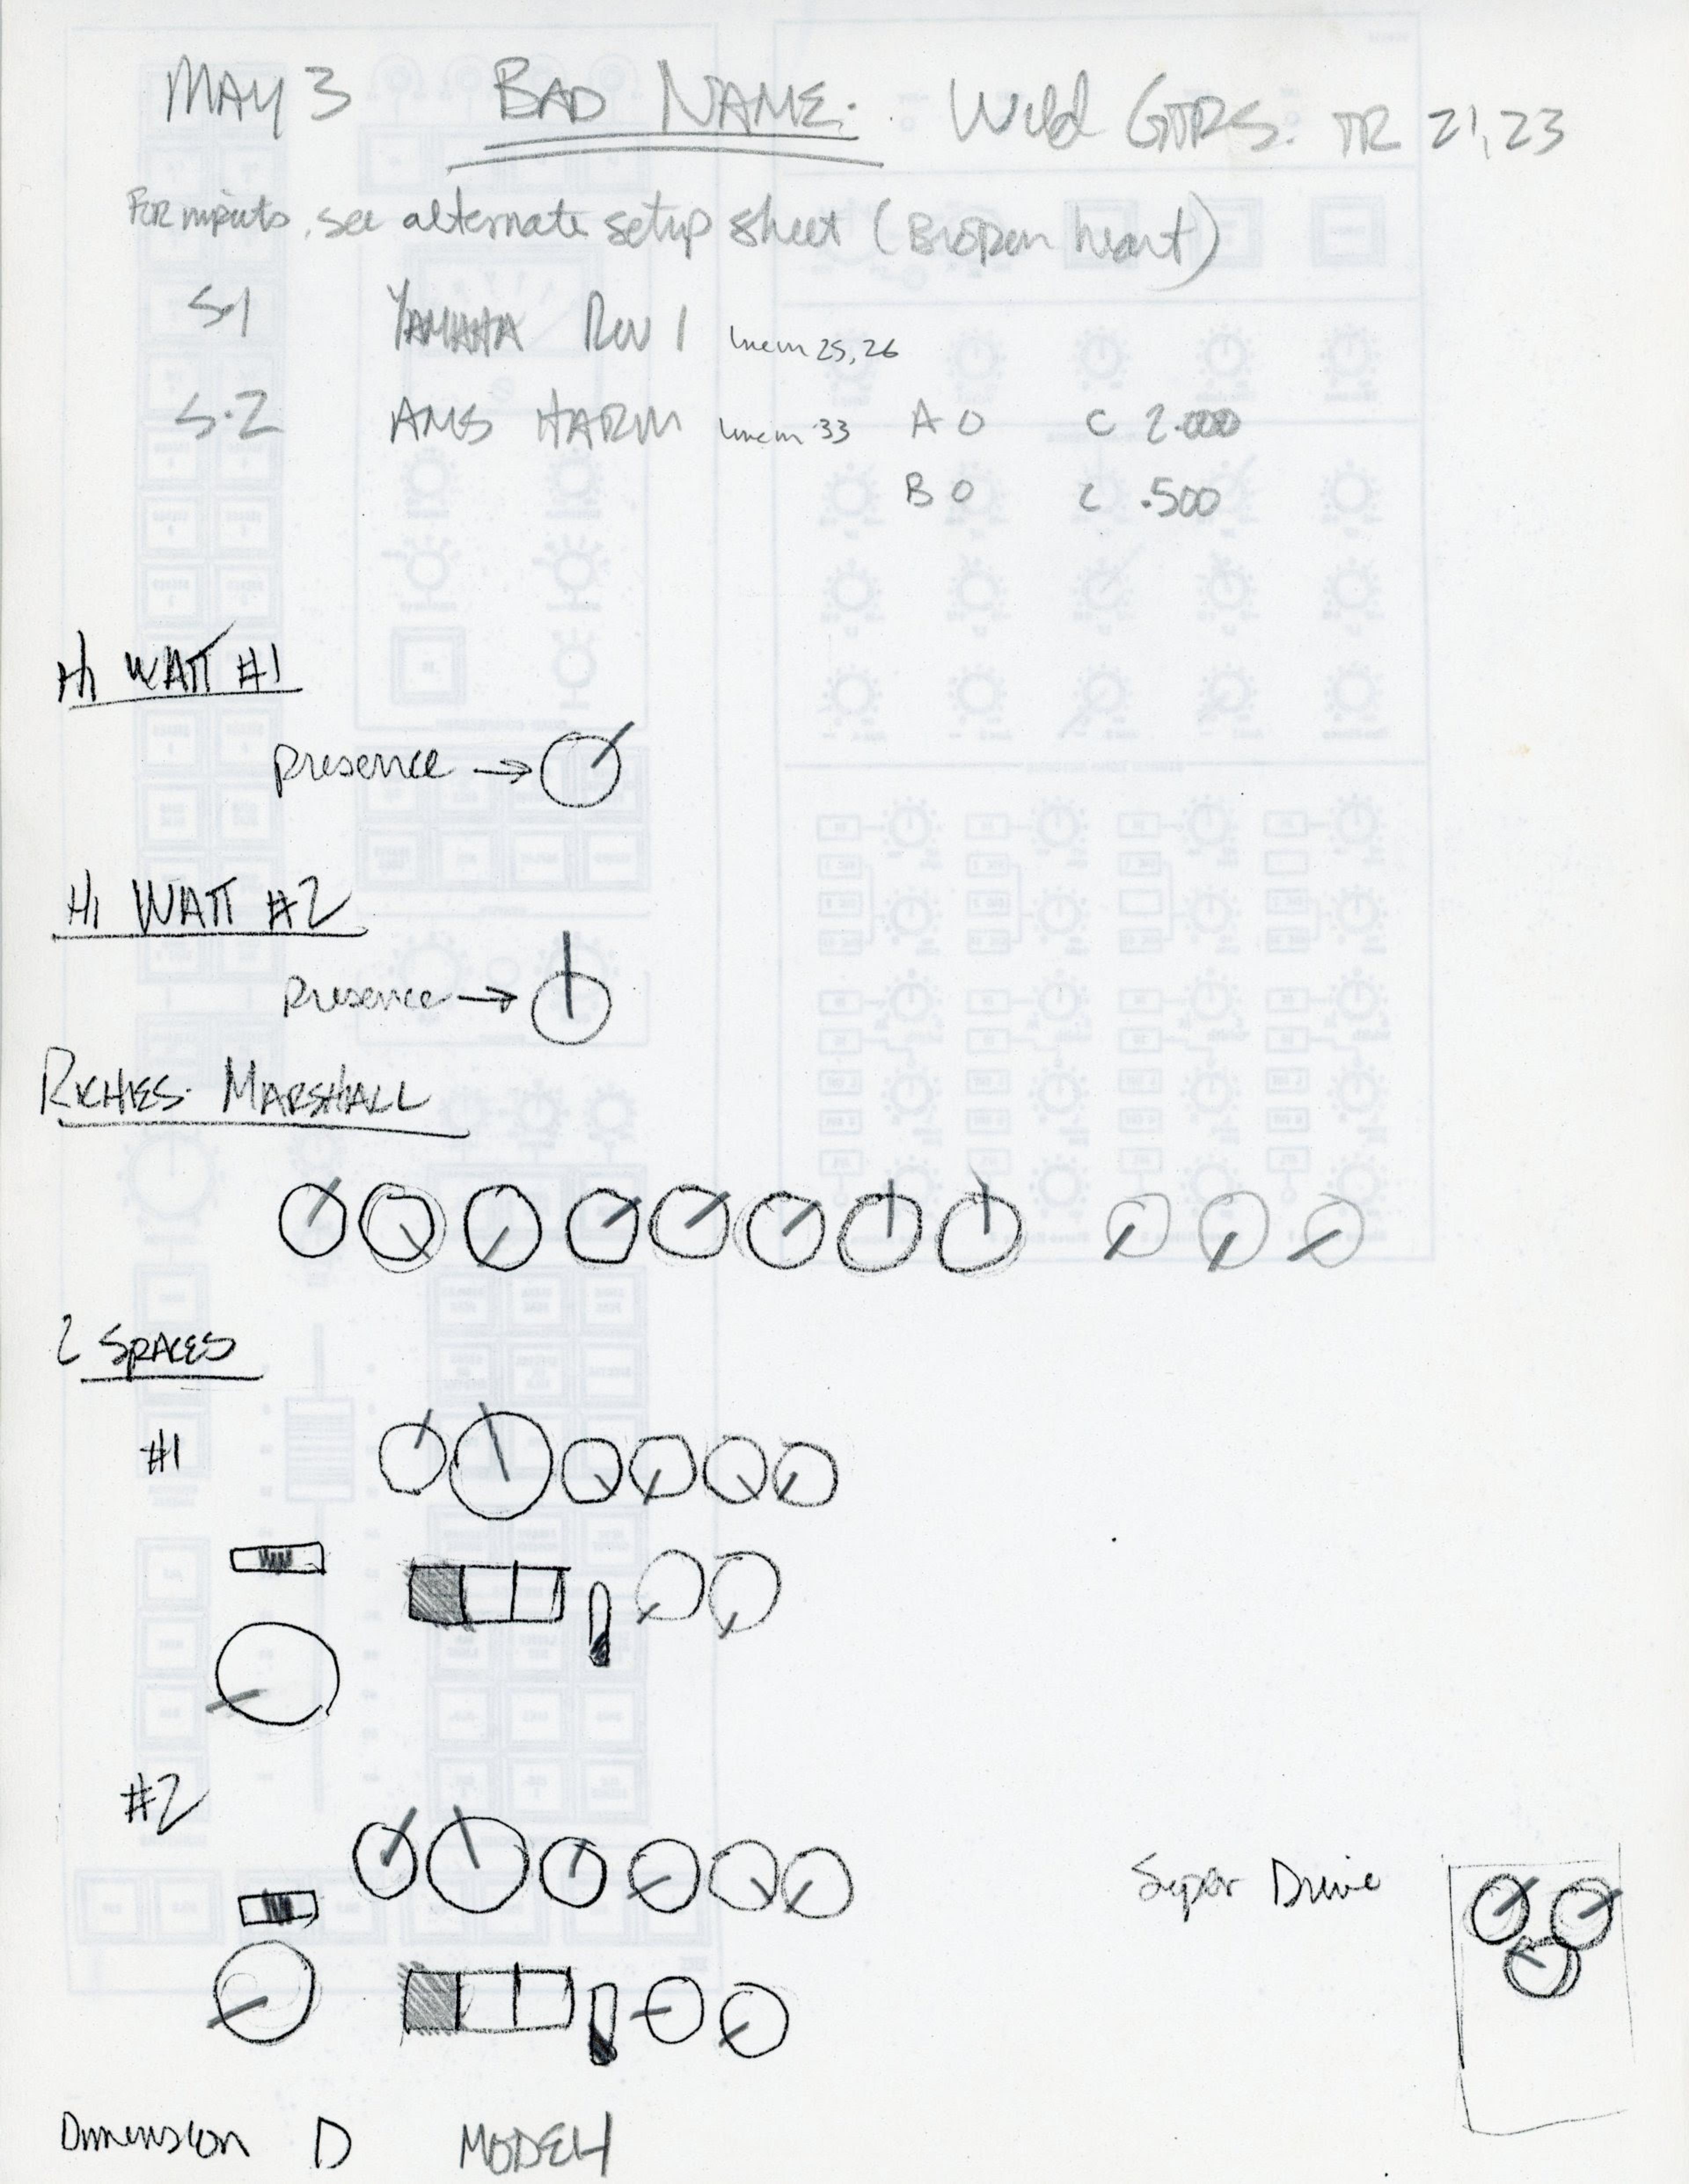 MAY 3 BAD NAME: Wild GTRS. TR 21, 23
For inputs, see alternate setup sheet (Broken heart)
S.1 YAMAHA Rev 1 mem 25, 26
S.2 AMS HARM mem 33 A 0 C 2.000
B 0 C .500
Hi WATT #1
presence →
Hi WATT #2
presence →
RICHIES MARSHALL
2 SPACES
#1
#2
Super Drive
Dimension D MODE 4